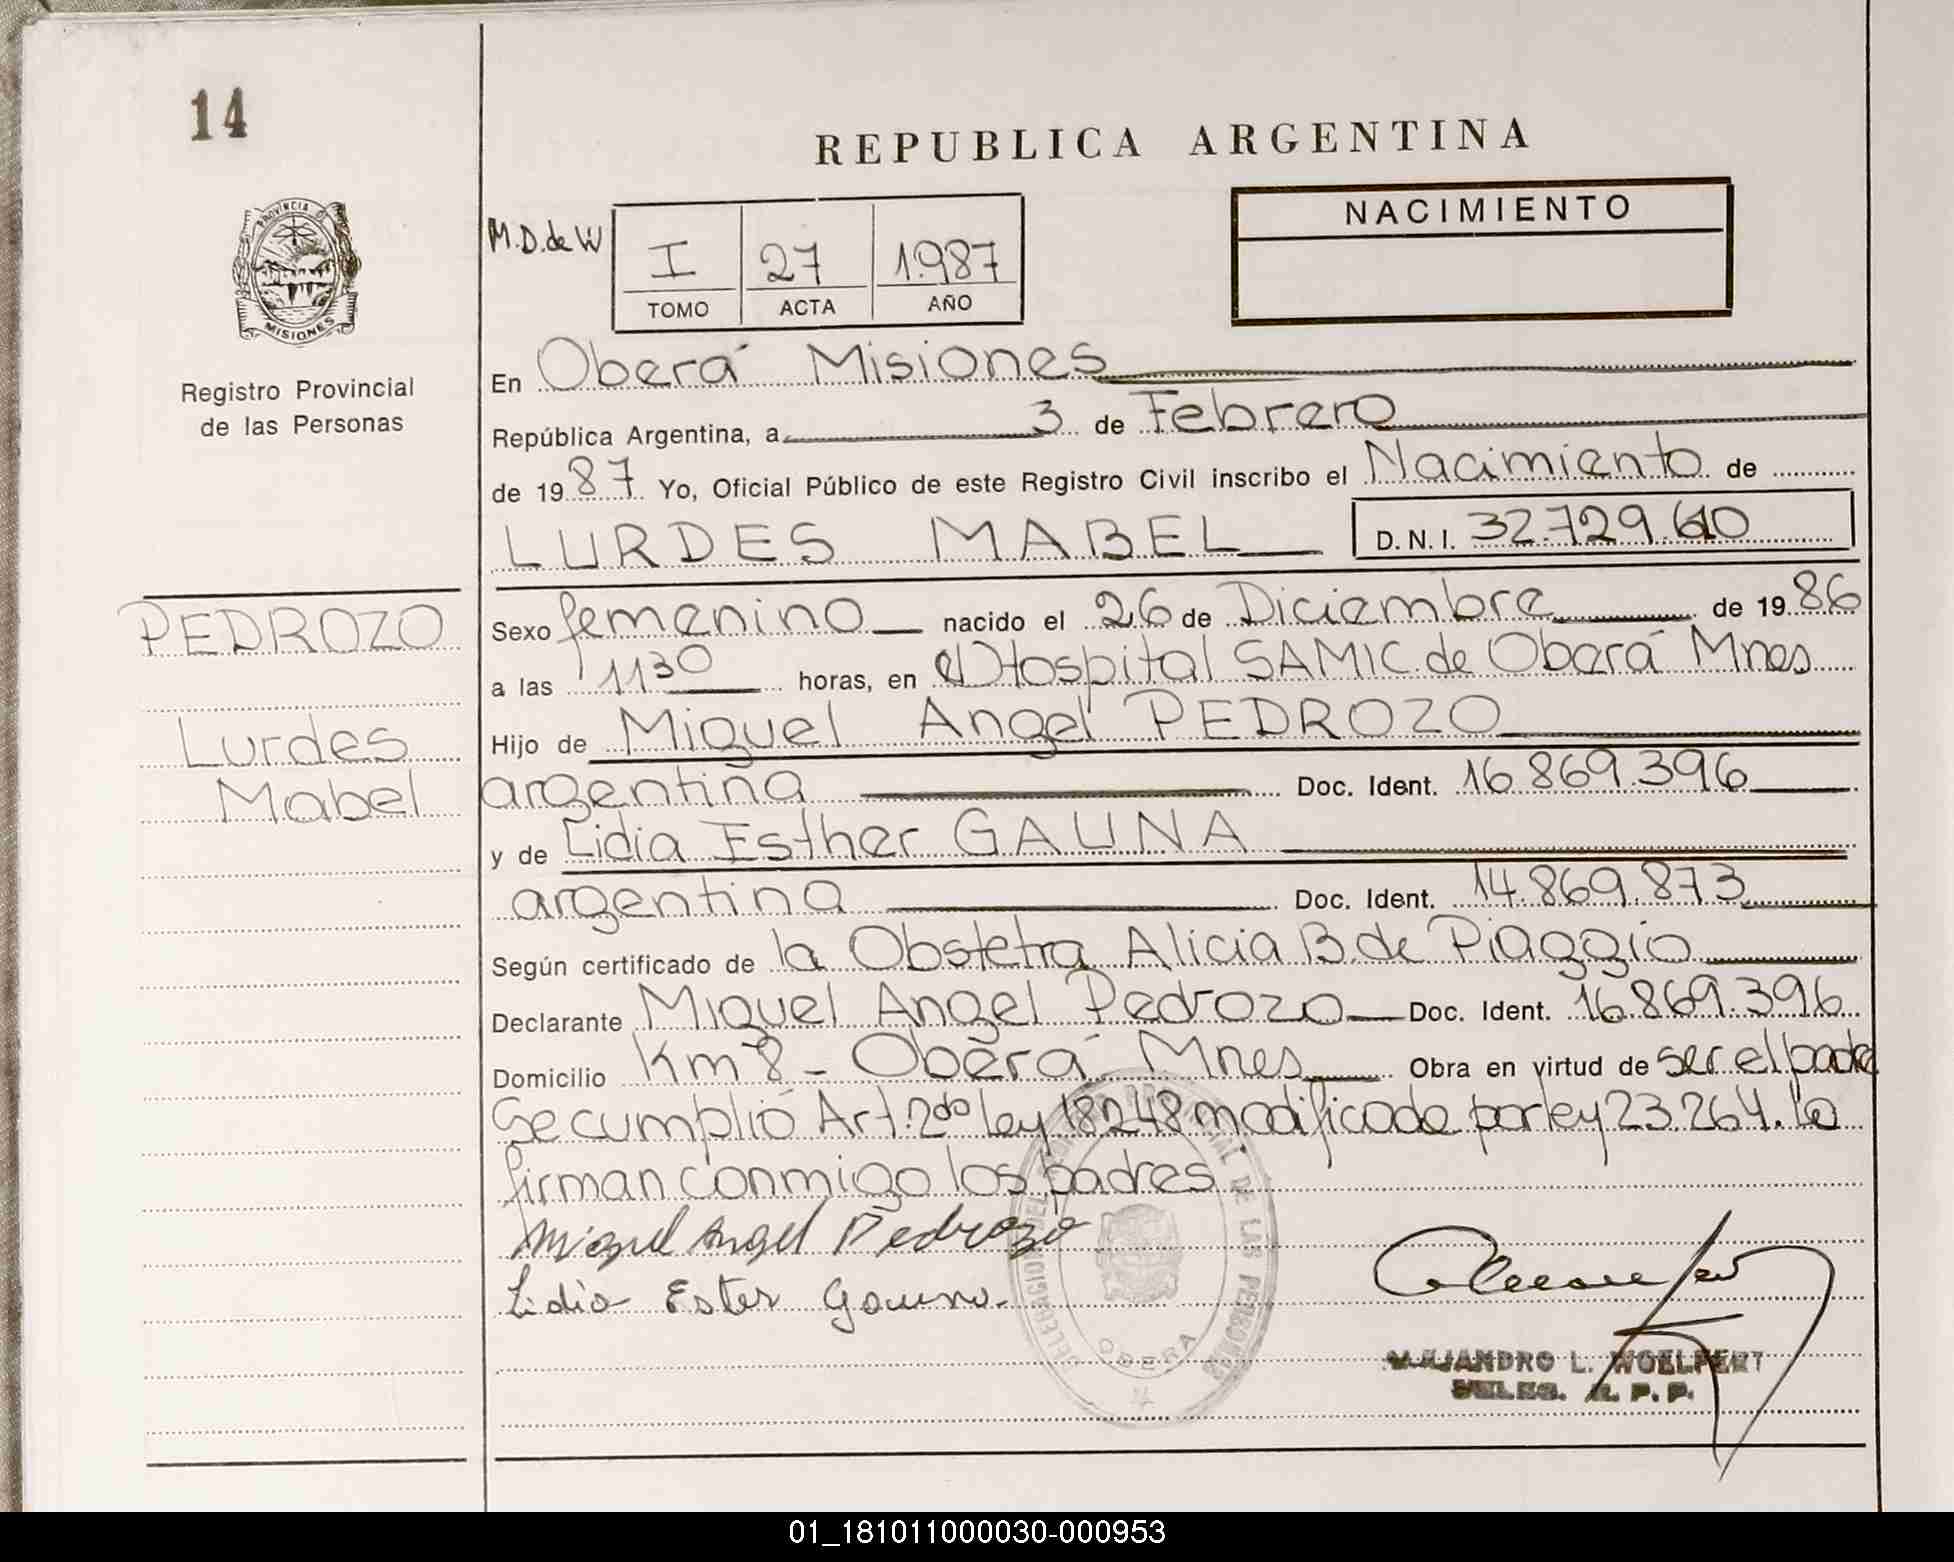 14
REPUBLICA ARGENTINA
PROVINCIA DE
MISIONES
Registro Provincial
de las Personas
M.D. de W
I 27 1.987
TOMO ACTA AÑO
NACIMIENTO
En Oberá Misiones
República Argentina, a 3 de Febrero
de 1987 Yo, Oficial Público de este Registro Civil inscribo el Nacimiento de
LURDES MABEL D.N.I. 32.729.610
PEDROZO
Lurdes
Mabel
Sexo femenino nacido el 26 de Diciembre de 1986
a las 1130 horas, en el Hospital SAMIC de Oberá Mnes
Hijo de Miguel Angel PEDROZO
argentina Doc. Ident. 16.869.396
y de Lidia Esther GAUNA
argentina Doc. Ident. 14.869.873
Según certificado de la Obstetra Alicia B. de Piaggio
Declarante Miguel Angel Pedrozo Doc. Ident. 16.869.396
Domicilio Km 8 - Oberá Mnes Obra en virtud de ser el padre
Se cumplió Art. 2do ley 18248 modificada por ley 23.264. Lo
firman conmigo los padres
Miguel Angel Pedrozo
Lidia Ester Gauna.
DELEGACION DEL REGISTRO PROVINCIAL DE LAS PERSONAS
OBERA
ALEJANDRO L. WOELFERT
DELEG. R. P. P.
01_181011000030-000953